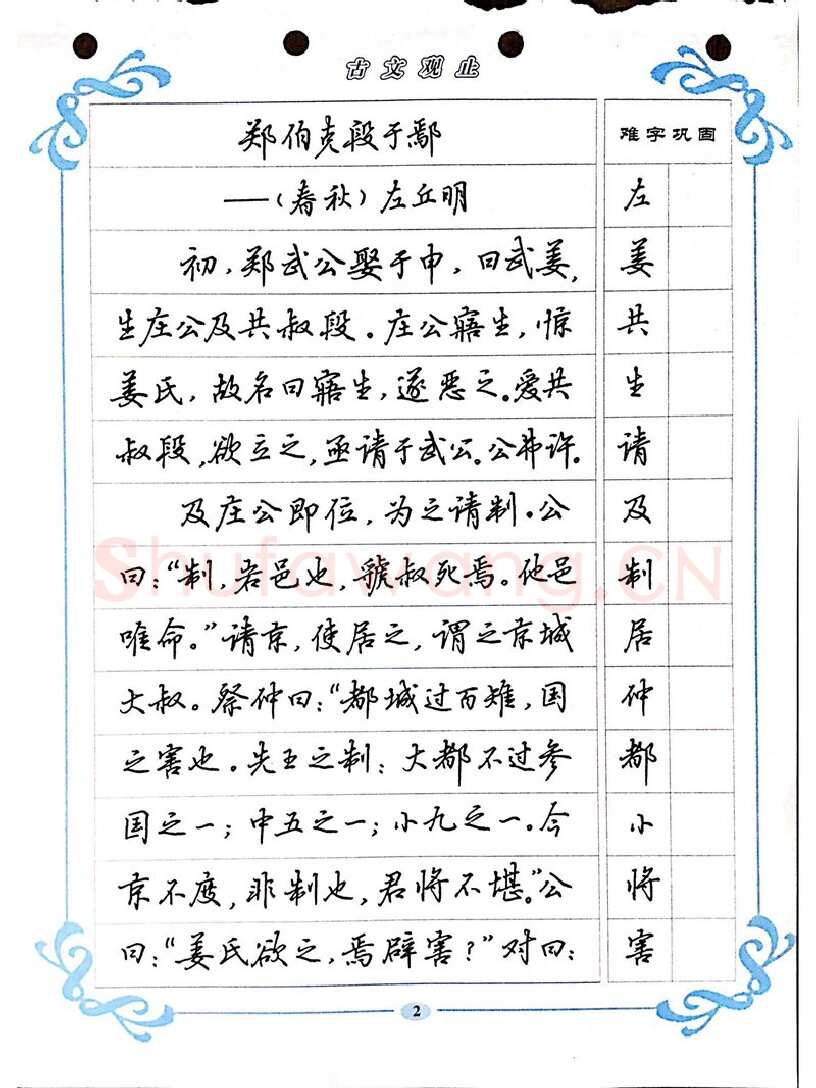 古文观止
郑伯克段于鄢
难字巩固
——(春秋)左丘明
左
初,郑武公娶于申,曰武姜,
姜
生庄公及共叔段。庄公寤生,惊
共
姜氏,故名曰寤生,遂恶之。爱共
生
叔段,欲立之,亟请于武公。公弗许。
请
及庄公即位,为之请制。公
及
曰:“制,岩邑也,虢叔死焉。他邑
制
唯命。”请京,使居之,谓之京城
居
大叔。祭仲曰:“都城过百雉,国
仲
之害也。先王之制:大都不过参
都
国之一;中五之一;小九之一。今
小
京不度,非制也,君将不堪。”公
将
曰:“姜氏欲之,焉辟害?”对曰:
害
2
Shufawang.CN